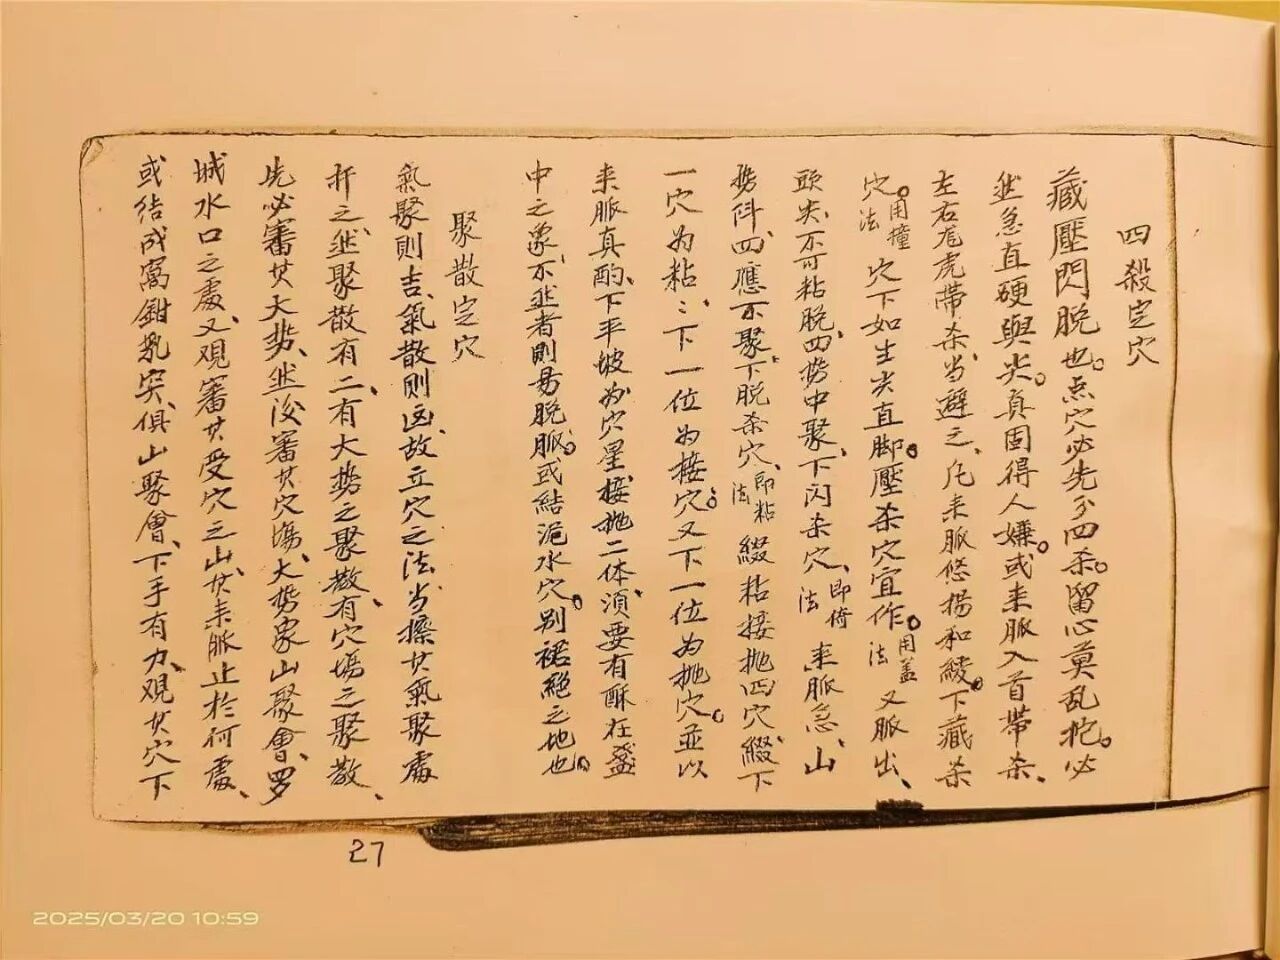 四殺定穴
藏壓閃脫也。点穴必先分四杀。留心莫乱挖。必
然急直硬與尖。真固得人嫌。或来脈入首带杀、
左右龙虎带杀、当避之、凡来脈悠揚和緩。下藏杀
穴。用撞穴法 穴下如生尖直脚。壓杀穴宜作。用盖法 又脈出、
頭尖不可粘脫、四势中聚、下闪杀穴、即倚法 来脈急、山
势斜、四應不聚、下脫杀穴、即粘法 綴粘接抛四穴、綴下
一穴为粘、:下一位为接穴。又下一位为抛穴。並以
来脈真酌、下平坡为穴星、接抛二体、須要有酥在盤
中之象、不然者則易脫脈。或結泥水穴。别裙絕之地也。
聚散定穴
氣聚則吉、氣散則凶、故立穴之法、当擦其氣聚處
扦之、然聚散有二、有大势之聚散、有穴場之聚散、
先必審其大势、然後審其穴場、大势象山聚會、罗
城水口之處、又观審其受穴之山、其来脈止於何處、
或结成窩鉗乳突、俱山聚會、下手有力、观其穴下
27
2025/03/20 10:59